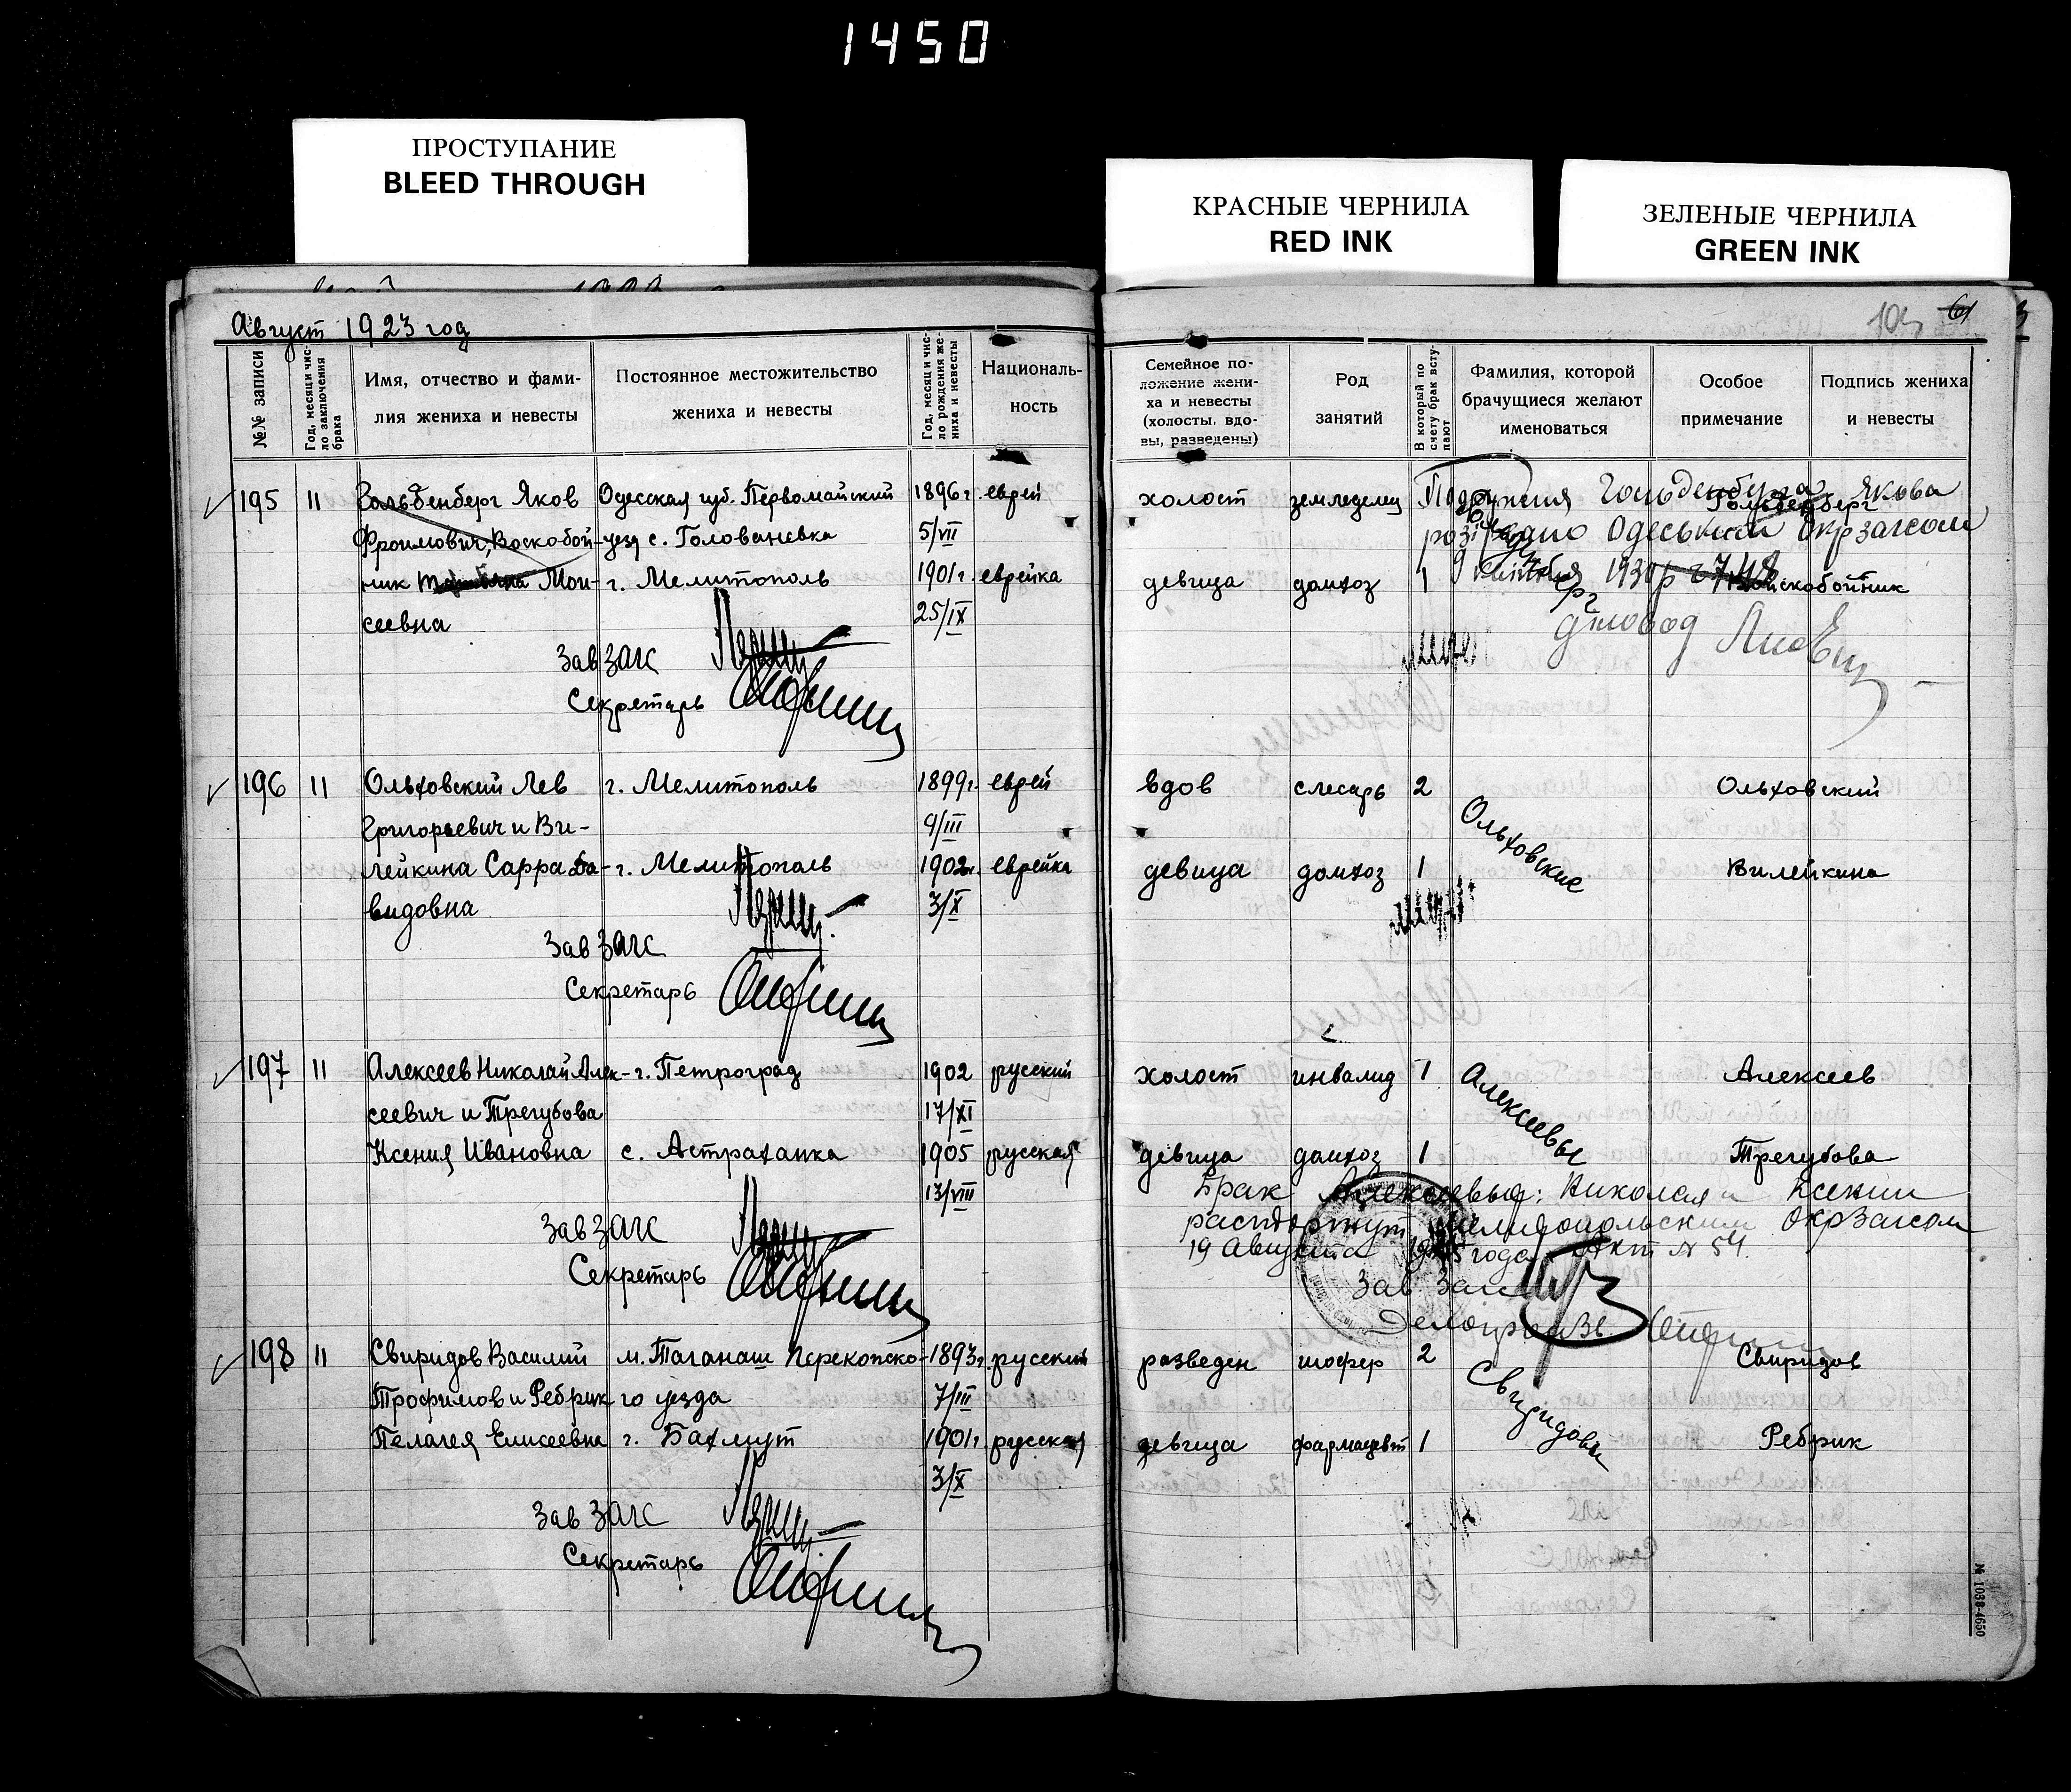 1450
ПРОСТУПАНИЕ
BLEED THROUGH
КРАСНЫЕ ЧЕРНИЛА
RED INK
ЗЕЛЕНЫЕ ЧЕРНИЛА
GREEN INK
Август 1923 год
№№ записи
Год, месяц и число заключения брака
Имя, отчество и фами-
лия жениха и невесты
Постоянное местожительство
жениха и невесты
Год, месяц и чис-
ло рождения же-
ниха и невесты
Националь-
ность
195 11 Гольденберг Яков Одесская губ. Первомайский 1896 г. еврей
Фроимович, Воскобой- уезд с. Голованевка 5/VII
ник Мои- г. Мелитополь 1901 г. еврейка
сеевна 25/IX
Зав ЗАГС
Секретарь
196 11 Ольховский Лев г. Мелитополь 1899 г. еврей
Григорьевич и Ви- 9/III
лейкина Сарра Да- г. Мелитополь 1902 г. еврейка
видовна 3/X
Зав ЗАГС
Секретарь
197 11 Алексеев Николай Алек- г. Петроград 1902 русский
сеевич и Трегубова 17/XI
Ксения Ивановна с. Астраханка 1905 русская
13/VIII
Зав ЗАГС
Секретарь
198 11 Свиридов Василий м. Таганаш Перекопско- 1893 г. русский
Трофимов и Ребрик го уезда 7/III
Пелагея Елисеевна г. Бахмут 1901 г русская
3/X
Зав ЗАГС
Секретарь
103 61
Семейное по-
ложение жени-
ха и невесты
(холосты, вдо-
вы, разведены)
Род
занятий
В который по
счету брак всту-
пают
Фамилия, которой
брачущиеся желают
именоваться
Особое
примечание
Подпись жениха
и невесты
холост земледелец Гольденберга Якова
Гольденберг
Одеським Окрзагсом
девица домхоз 1 1930 р Воскобойник
діловод
вдов слесарь 2 Ольховский
Ольховские
девица домхоз 1 Вилейкина
холост инвалид 1 Алексеев
Алексеевы
девица домхоз 1 Трегубова
Брак Алексеевых: Николая и Ксении
расторжут Мелитопольским Окрзагсом
19 Августа 1925 года Акт N 54.
Зав. Загс
разведен шофер 2 Свиридов
Свиридовы
девица фармацевт 1 Ребрик
№ 1038-4650